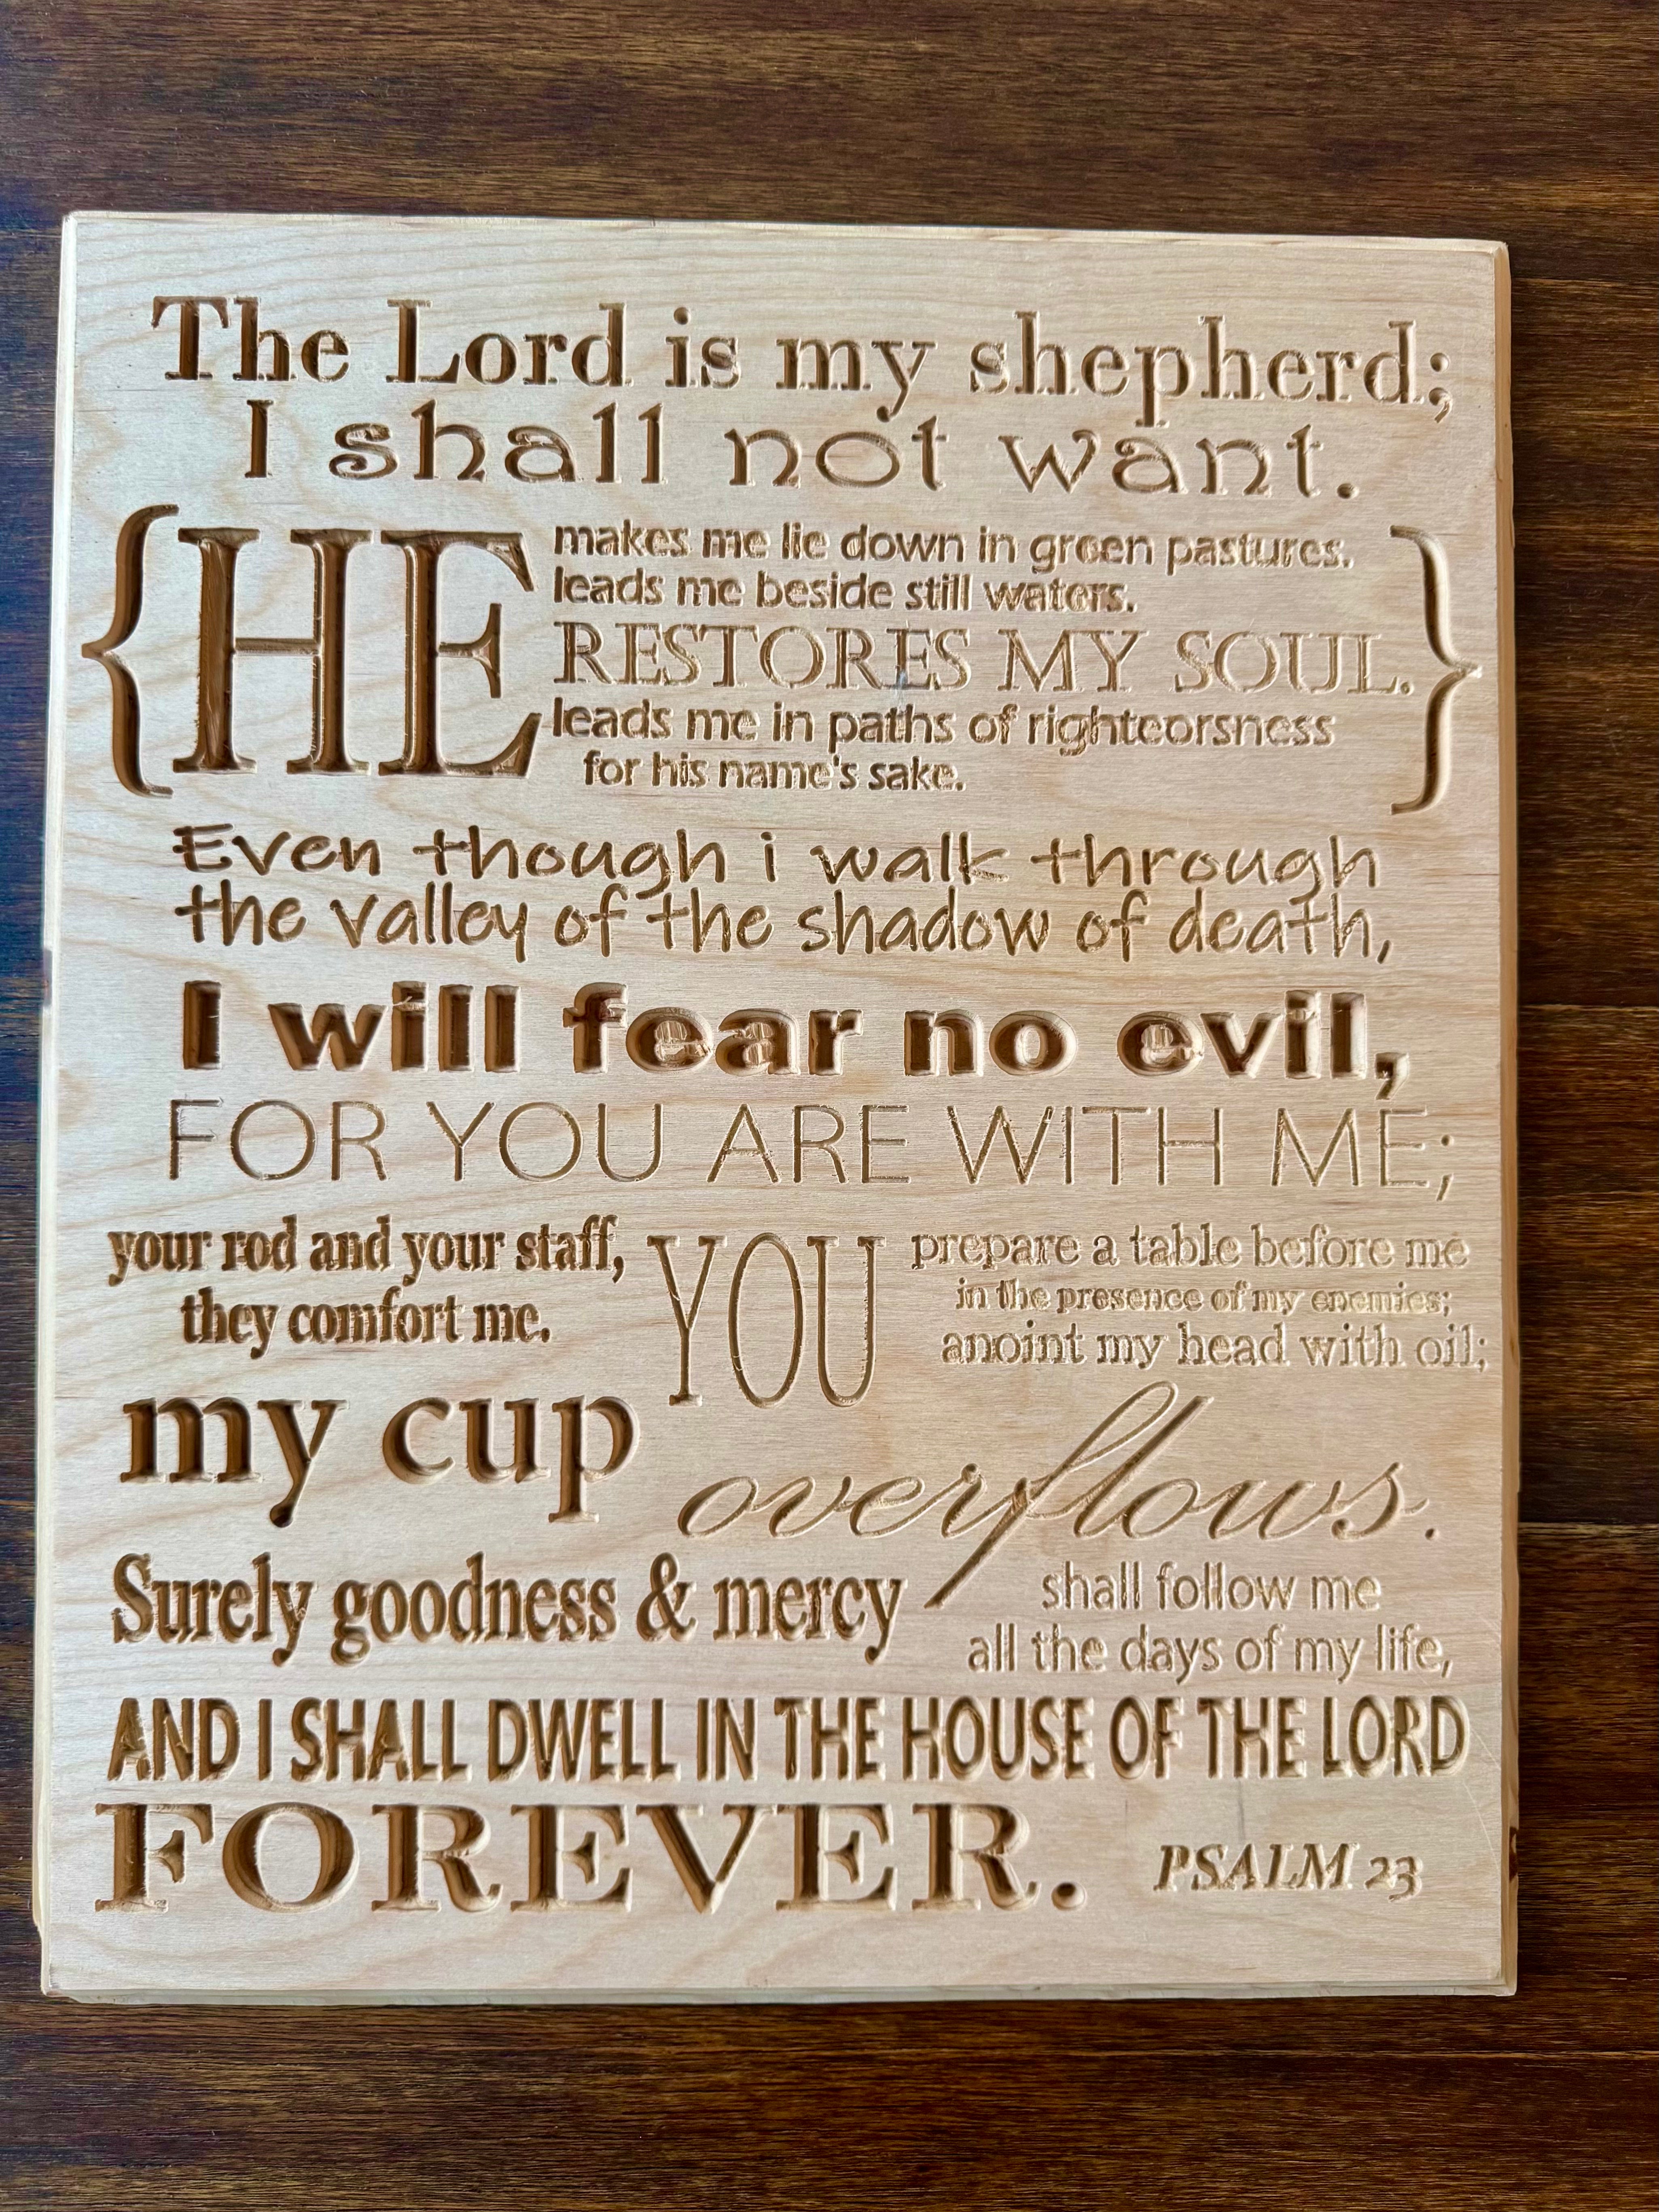 The Lord is my shepherd;
I shall not want.
{HE
makes me lie down in green pastures.
leads me beside still waters.
RESTORES MY SOUL.}
leads me in paths of righteorsness
for his name's sake.
Even though i walk through
the valley of the shadow of death,
I will fear no evil,
FOR YOU ARE WITH ME;
your rod and your staff,
they comfort me.
YOU
prepare a table before me
in the presence of my enemies;
anoint my head with oil;
my cup overflows.
Surely goodness & mercy
shall follow me
all the days of my life,
AND I SHALL DWELL IN THE HOUSE OF THE LORD
FOREVER.
PSALM 23